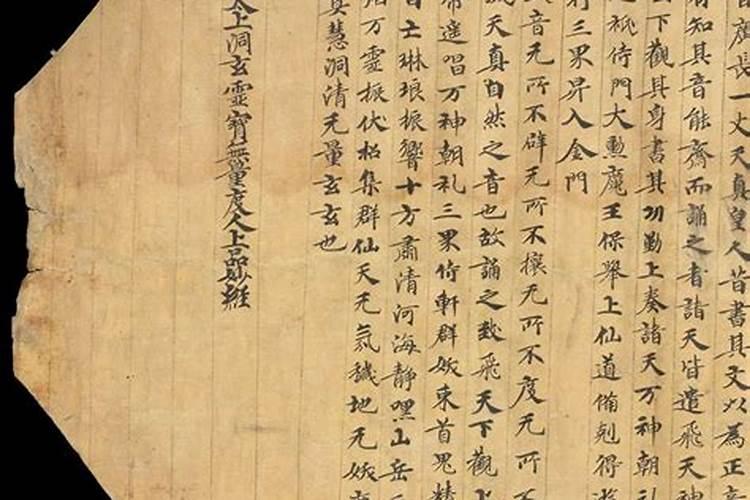 廣長一丈天真皇人昔書其文以為正音
有知其音能齋而誦之者諸天皆遣飛天神
下觀其身書其功勤上奏諸天万神朝礼
祇侍門大勳魔王保舉上仙道備剋得遊
行三界昇入金門
音无所不辟无所不攘无所不度无所不
成天真自然之音也故誦之致飛天下觀上
帝遥唱万神朝礼三界侍軒群妖束首鬼精
自亡琳琅振響十方肅清河海靜嘿山岳
烟万靈振伏招集群仙天无氛穢地无妖
冥慧洞清无量玄玄也
太上洞玄靈寶無量度人上品妙經